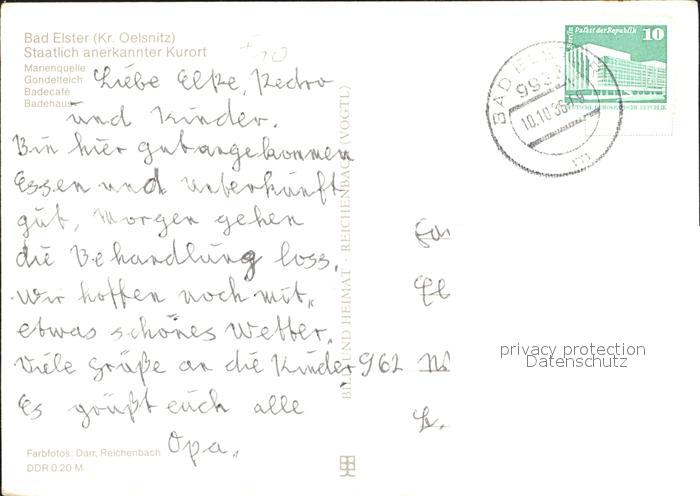 Bad Elster (Kr. Oelsnitz)
Staatlich anerkannter Kurort
Marienquelle
Gondelteich
Badecafé
Badehaus
Liebe Elke, Pedro
und Kinder.
Bin hier gutangekommen
Essen und unterkunft
gut, Morgen gehen
die Behandlung loss.
Wir hoffen noch mit,
etwas schönes Wetter.
Viele Grüße an die Kinder
Es grüßt euch alle
Opa.
Farbfotos: Darr, Reichenbach
DDR 0.20 M
BILD UND HEIMAT · REICHENBACH (VOGTL)
Berlin Palast der Republik
10
DEUTSCHE DEMOKRATISCHE REPUBLIK
BAD ELSTER
10.10.86
m
962
privacy protection
Datenschutz